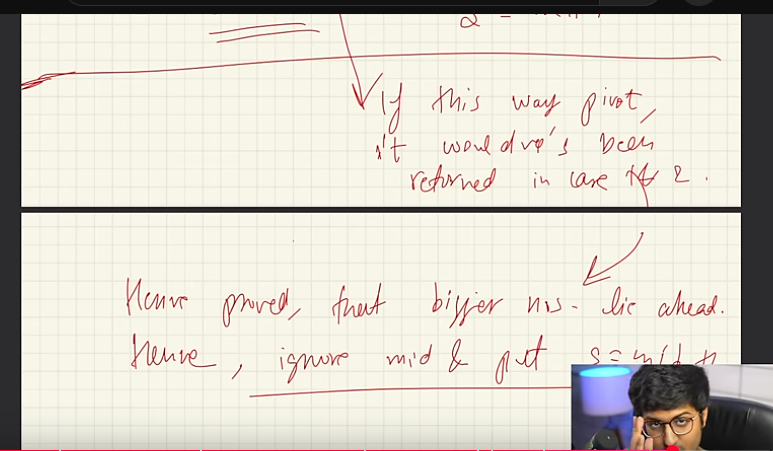 If this way pivot,
it would've's been
returned in case 2.
Hence proved, that bigger nos- lie ahead.
Hence, ignore mid & put s = mid +